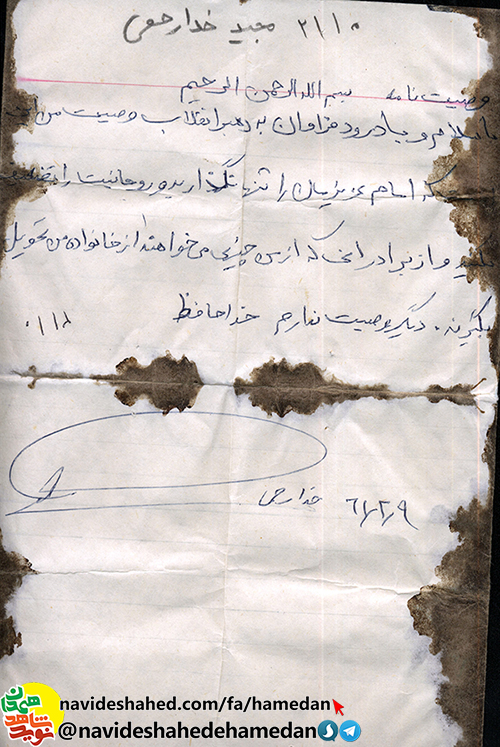 ۲۱۱۰ مجید خدارحمی
وصیت نامه بسم الله الرحمن الرحیم
با سلام و با درود فراوان به رهبر انقلاب وصیت من این
که امام عزیزمان را تنها نگذارید و روحانیت را تضعیف
نکنید و از برادرانی که از من چیزی می خواهند از خانواده من تحویل
بگیرند. دیگر وصیت ندارم خداحافظ
خدارحمی ۶۱/۲/۹
navideshahed.com/fa/hamedan
@navideshahedehamedan
نوید شاهد
همدان